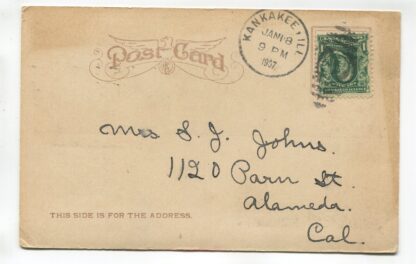 Post Card
KANKAKEE, ILL.
JAN 18
9 PM
1907
Mrs S. J. Johns.
1120 Parn St.
Alameda.
Cal.
THIS SIDE IS FOR THE ADDRESS.